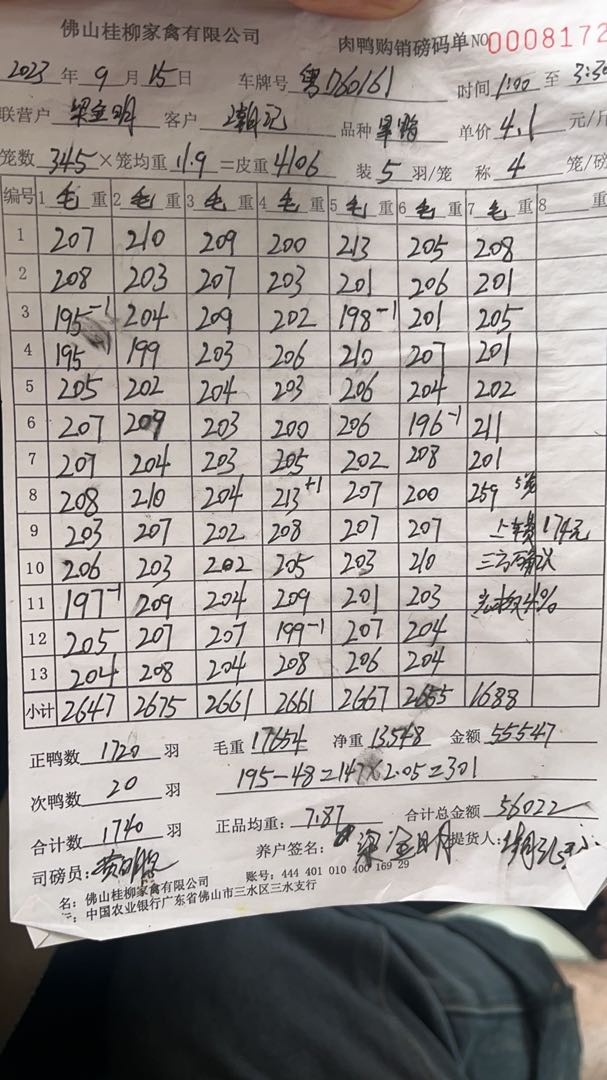 佛山桂柳家禽有限公司 肉鸭购销磅码单 NO 0008172
2023 年 9 月 15 日 车牌号 粤D60161 时间 1:00 至 3:30
联营户 梁金明 客户 品种 单价 4.1 元/斤
笼数 345 × 笼均重 11.9 = 皮重 4106 装 5 羽/笼 称 4 笼/磅
编号 1 毛 重 2 毛 重 3 毛 重 4 毛 重 5 毛 重 6 毛 重 7 毛 重 8 重
1 207 210 209 200 213 205 208
2 208 203 207 203 201 206 201
3 195-1 204 209 202 198-1 201 205
4 195-1 199 203 206 210 207 201
5 205 202 204 203 206 204 202
6 207 209 203 200 206 196-1 211
7 207 204 203 205 202 208 201
8 208 210 204 213+1 207 200 259 5笼
9 203 207 202 208 207 207 上车费174元
10 206 203 202 205 203 210 三方确认
11 197-1 209 204 209 201 203 41%
12 205 207 207 199-1 207 204
13 204 208 204 208 206 204
小计 2647 2675 2661 2661 2667 2655 1688
正鸭数 1720 羽 毛重 17654 净重 13548 金额 55547
次鸭数 20 羽 195-48=147×2.05=301
合计数 1740 羽 正品均重: 7.87 合计总金额 56022
司磅员: 养户签名: 梁金明 提货人:
名: 佛山桂柳家禽有限公司 账号: 444 401 010 400 169 29
中国农业银行广东省佛山市三水区三水支行